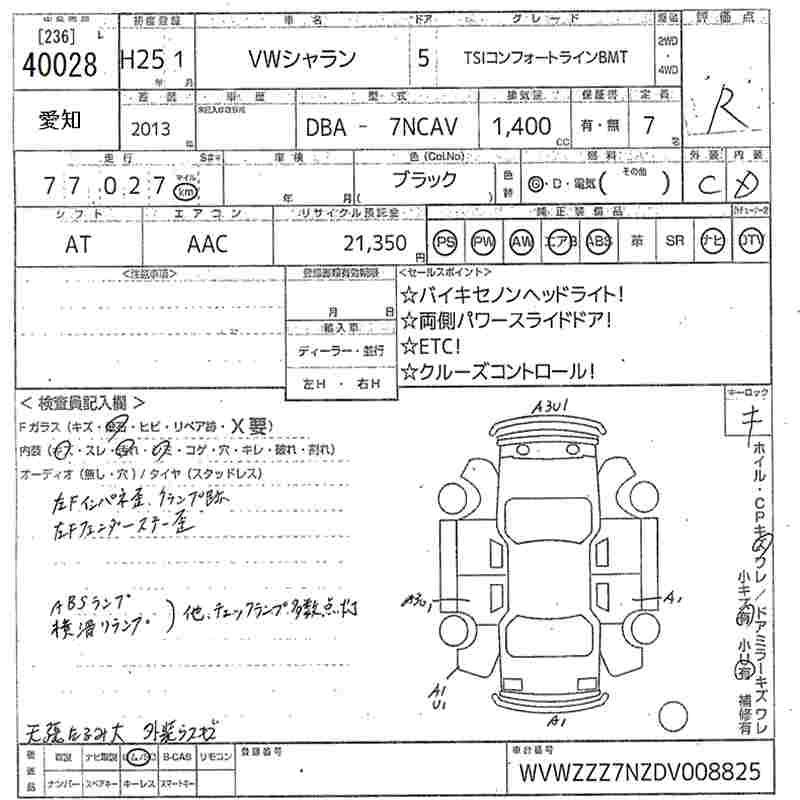 [236] L
40028
初度登録
H25 1
年 月
車名
VWシャラン
ドア
5
グレード
TSIコンフォートラインBMT
2WD
・
4WD
評価点
R
愛知
2013
年
車歴
型式
DBA - 7NCAV
排気量
1,400
CC
保証書
有・無
定員
7
名
走行
77027
マイル
km
S#
車検
年 月
色(Col.No)
ブラック
( )
色替
燃料
G・D・電気 (その他 )
外装
C
内装
D
シフト
AT
エアコン
AAC
リサイクル預託金
21,350
円
純正装備品
PS PW AW エアB ABS 革 SR ナビ DTV
<注意事項>
登録書類有効期限
月 日
輸入車
ディーラー・並行
左H ・ 右H
<セールスポイント>
☆バイキセノンヘッドライト!
☆両側パワースライドドア!
☆ETC!
☆クルーズコントロール!
キーロック
キ
<検査員記入欄>
Fガラス(キズ・飛石・ヒビ・リペア跡・X要)
内装(キズ・スレ・汚れ・ヌケ・コゲ・穴・キレ・破れ・割れ)
オーディオ(無し・穴)/タイヤ(スタッドレス)
左Fインパネ歪、クランプ跡
左Fフェンダーステー歪
ABSランプ
横滑りランプ ) 他、チェックランプ多数点灯
天張たるみ大 外装ラスゼ
A3U1
A3U1
A1
A1
U1
A1
ホイル・CPキズワレ/ドアミラーキズワレ
小キズ有 小U有 補修有
後返品
取説 ナビ取説 リモコン B-CAS リモコン
ナンバー スペアキー キーレス スマートキー
登録番号
車台番号
WVWZZZ7NZDV008825